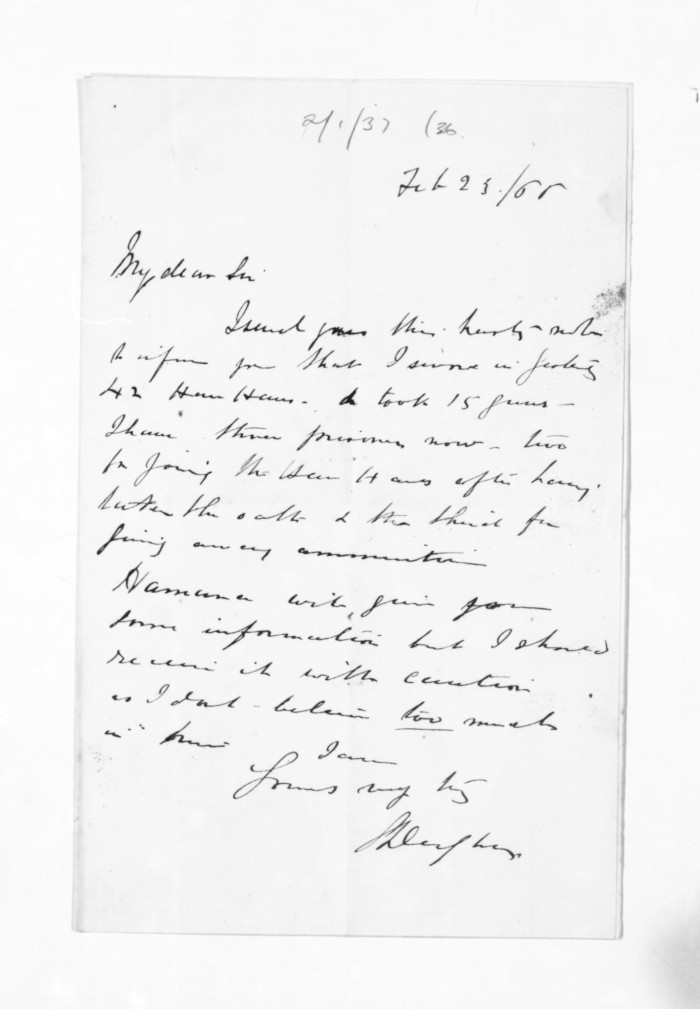 2/1/37 (36
Feb 23./66
My dear Sir
I send you this hasty note
to inform you that I swore in yesterday
42 Hau Haus. & took 15 guns -
I have three prisoners now - two
for joining the Hau Haus after having
taken the oath & the third for
giving away ammunition
Hamana will give you
some information but I should
receive it with caution
as I dont believe too much
in him
I am
Yours very try